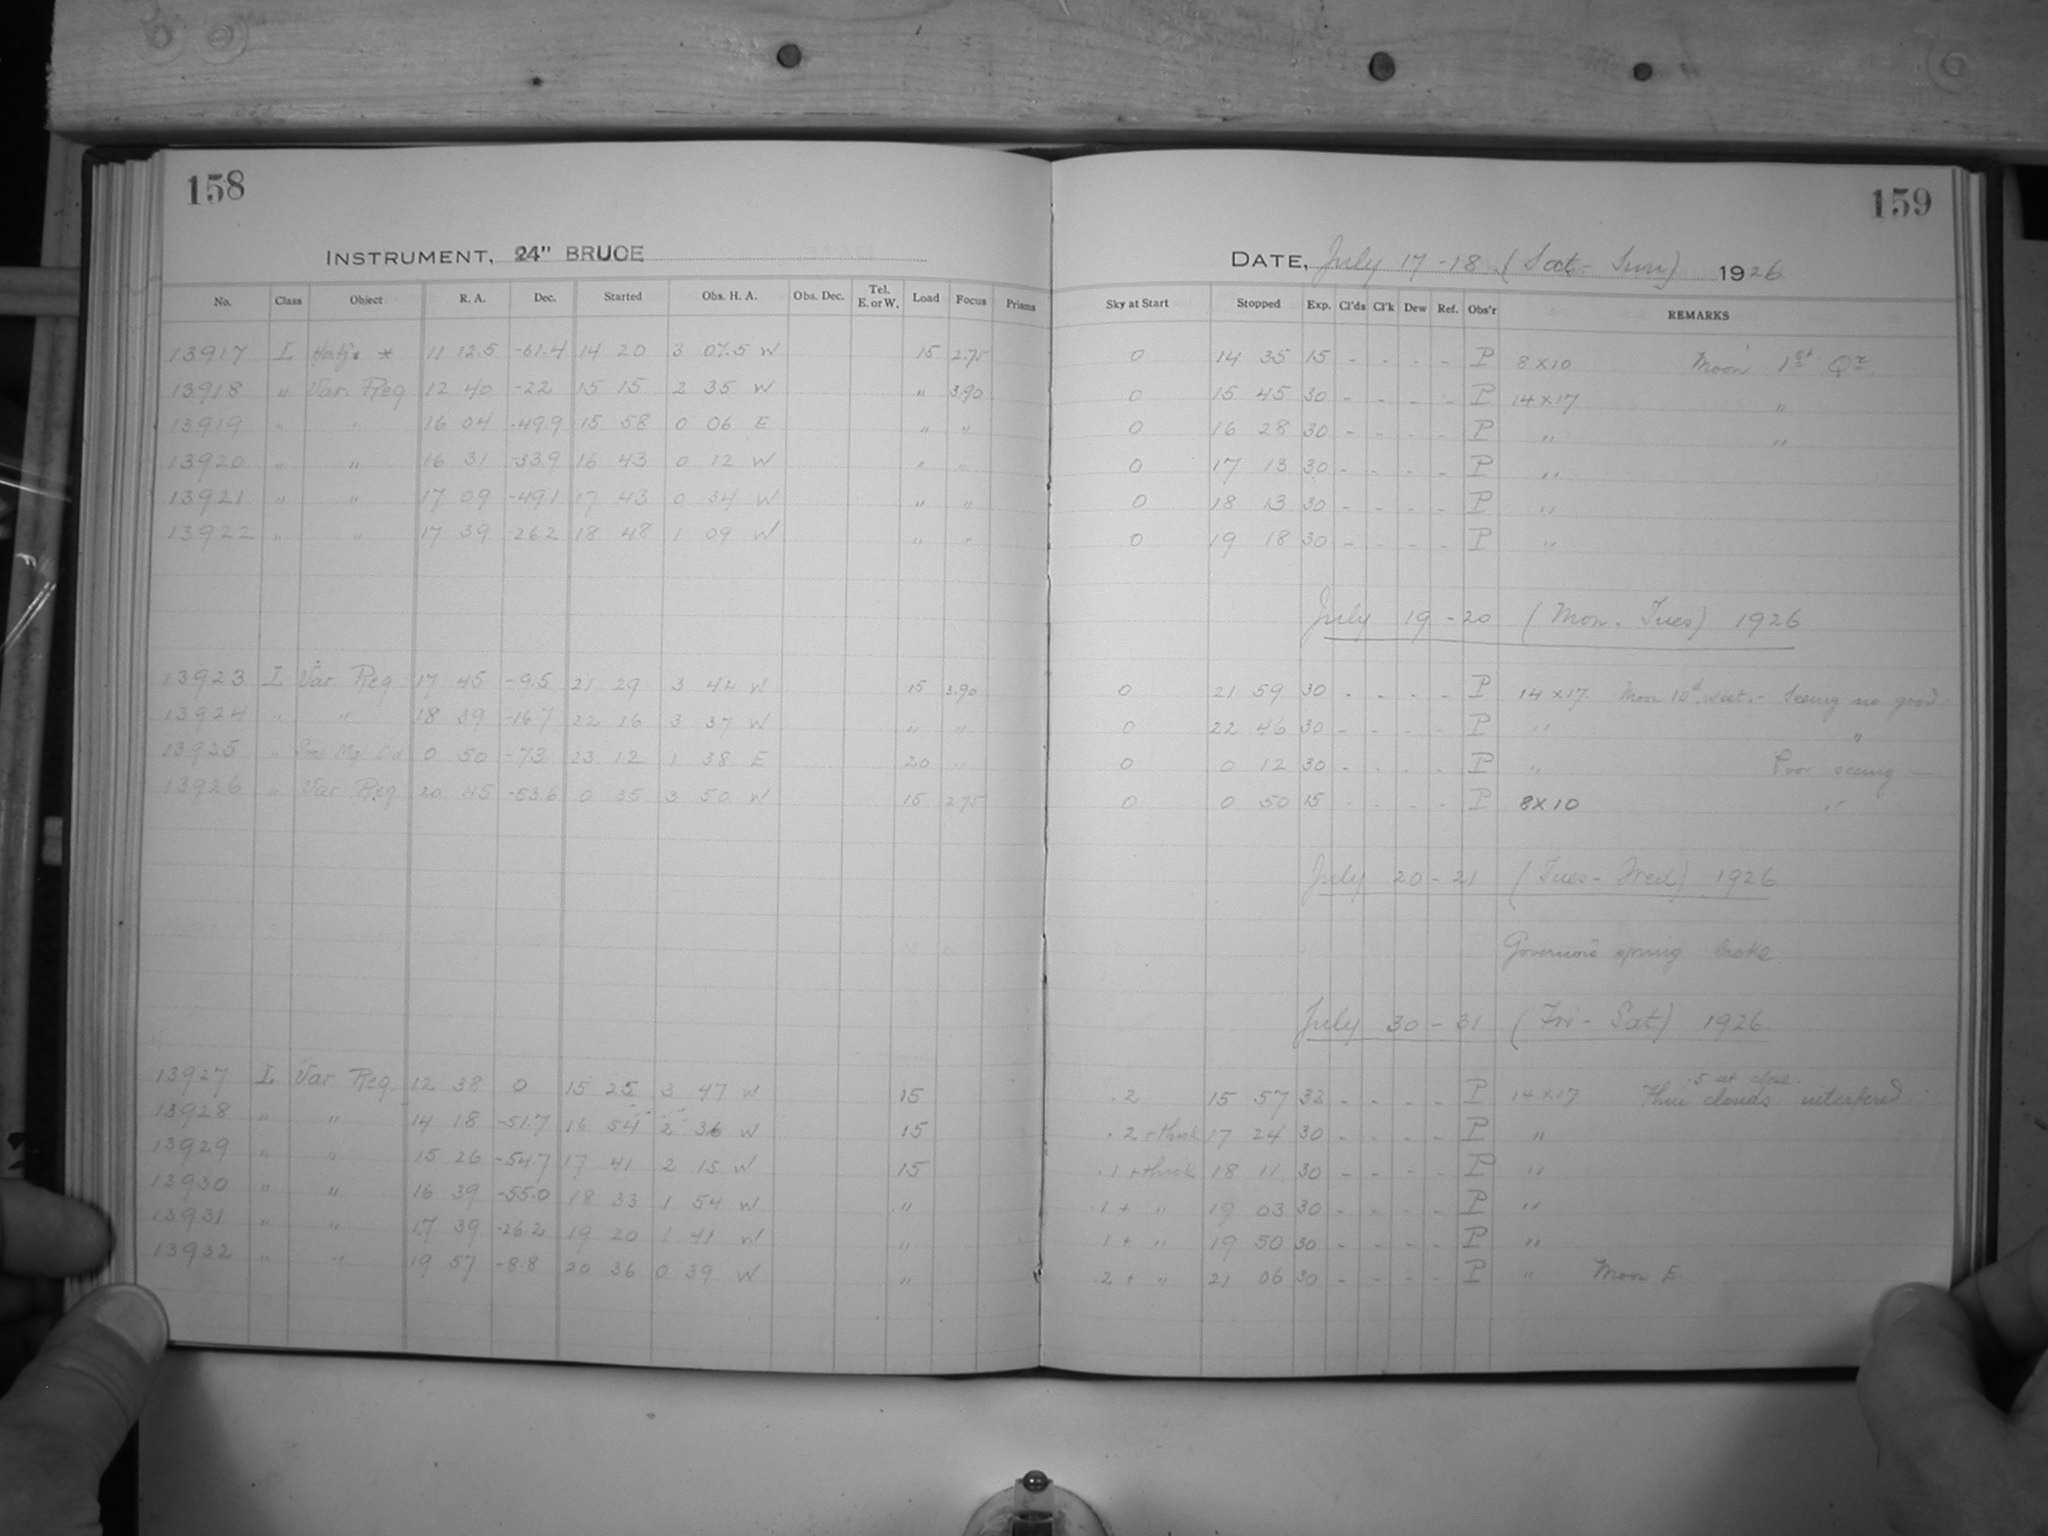 158
159
INSTRUMENT, 24" BRUCE
DATE, July 17-18 (Sat-Sun) 1926
No. Class Object R. A. Dec. Started Obs. H. A. Obs. Dec. Tel. E. or W. Load Focus Prisms Sky at Start Stopped Exp. Cl'ds Cl'k Dew Ref. Obs'r REMARKS
13917 I * 11 12.5 -61.4 14 20 3 07.5 W 15 2.75 0 14 35 15 - - - - P 8x10 Moon 1st Qr.
13918 " Var. Reg 12 40 -22 15 15 2 35 W " 3.90 0 15 45 30 - - - - P 14x17 "
13919 " " 16 04 -49.9 15 58 0 06 E " " 0 16 28 30 - - - - P " "
13920 " " 16 31 -33.9 16 43 0 12 W " " 0 17 13 30 - - - - P "
13921 " " 17 09 -49.1 17 43 0 34 W " " 0 18 13 30 - - - - P "
13922 " " 17 39 -26.2 18 48 1 09 W " " 0 19 18 30 - - - - P "
July 19-20 (Mon. Tues) 1926
13923 I Var Reg 17 45 -9.5 21 29 3 44 W 15 3.90 0 21 59 30 - - - - P 14x17. Moon 10d west. - Seeing no good
13924 " " 18 39 -16.7 22 16 3 37 W " " 0 22 46 30 - - - - P " "
13925 " Sml Mgl Cld 0 50 -73 23 12 1 38 E 20 " 0 0 12 30 - - - - P " Poor seeing -
13926 " Var Reg 20 45 -53.6 0 35 3 50 W 15 2.75 0 0 50 15 - - - - P 8x10 "
July 20-21 (Tues-Wed) 1926
Governor's spring broke.
July 30-31 (Fri-Sat) 1926
13927 I Var Reg 12 38 0 15 25 3 47 W 15 .2 15 57 32 - - - - P 14x17 Thin clouds interfered .5 at close.
13928 " " 14 18 -51.7 16 54 2 36 W 15 .2 + thick 17 24 30 - - - - P "
13929 " " 15 26 -54.7 17 41 2 15 W 15 .1 + thick 18 11 30 - - - - P "
13930 " " 16 39 -55.0 18 33 1 54 W " .1 + " 19 03 30 - - - - P "
13931 " " 17 39 -26.2 19 20 1 41 W " .1 + " 19 50 30 - - - - P "
13932 " " 19 57 -8.8 20 36 0 39 W " .2 + " 21 06 30 - - - - P " Moon E